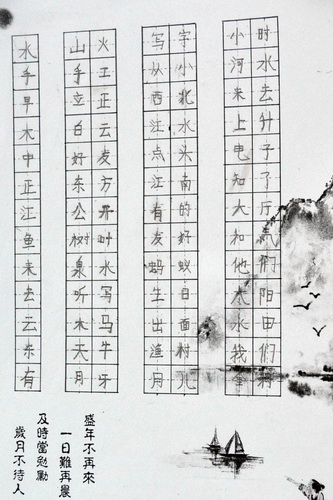 水 山火 写字 小时
手 手工 从小 河水
早 立正 西北 来去
木 白云 江水 上升
中 好友 点头 电子
正 东方 江南 知了
江 公开 有的 大斤
鱼 树叶 友好 和气
来 泉水 蚂蚁 他们
去 听写 生日 太阳
云 木马 出面 水田
东 天牛 渔村 我们
有 月牙 月儿
盛年不再來
一日難再晨
及時當勉勵
歲月不待人